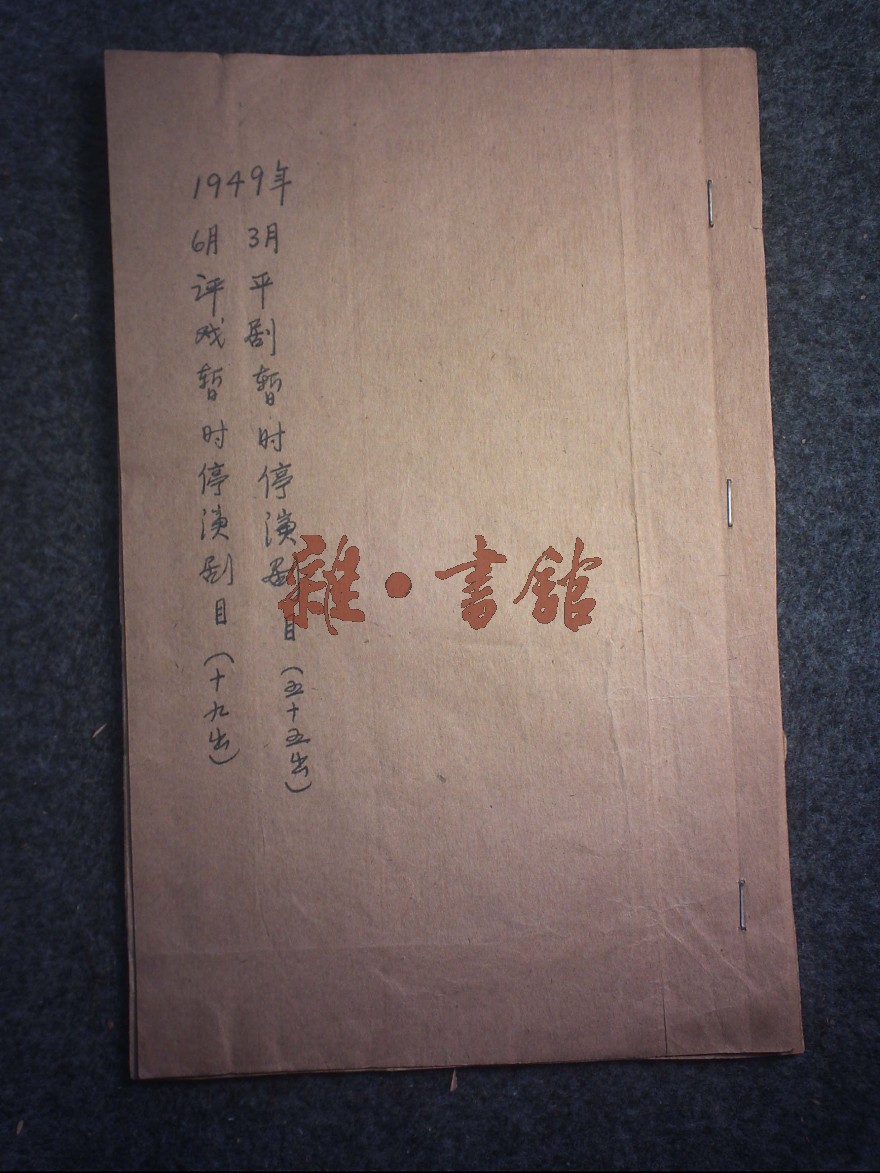 1949年
3月平剧暂时停演剧目（五十五出）
6月评戏暂时停演剧目（十九出）
雜·書館